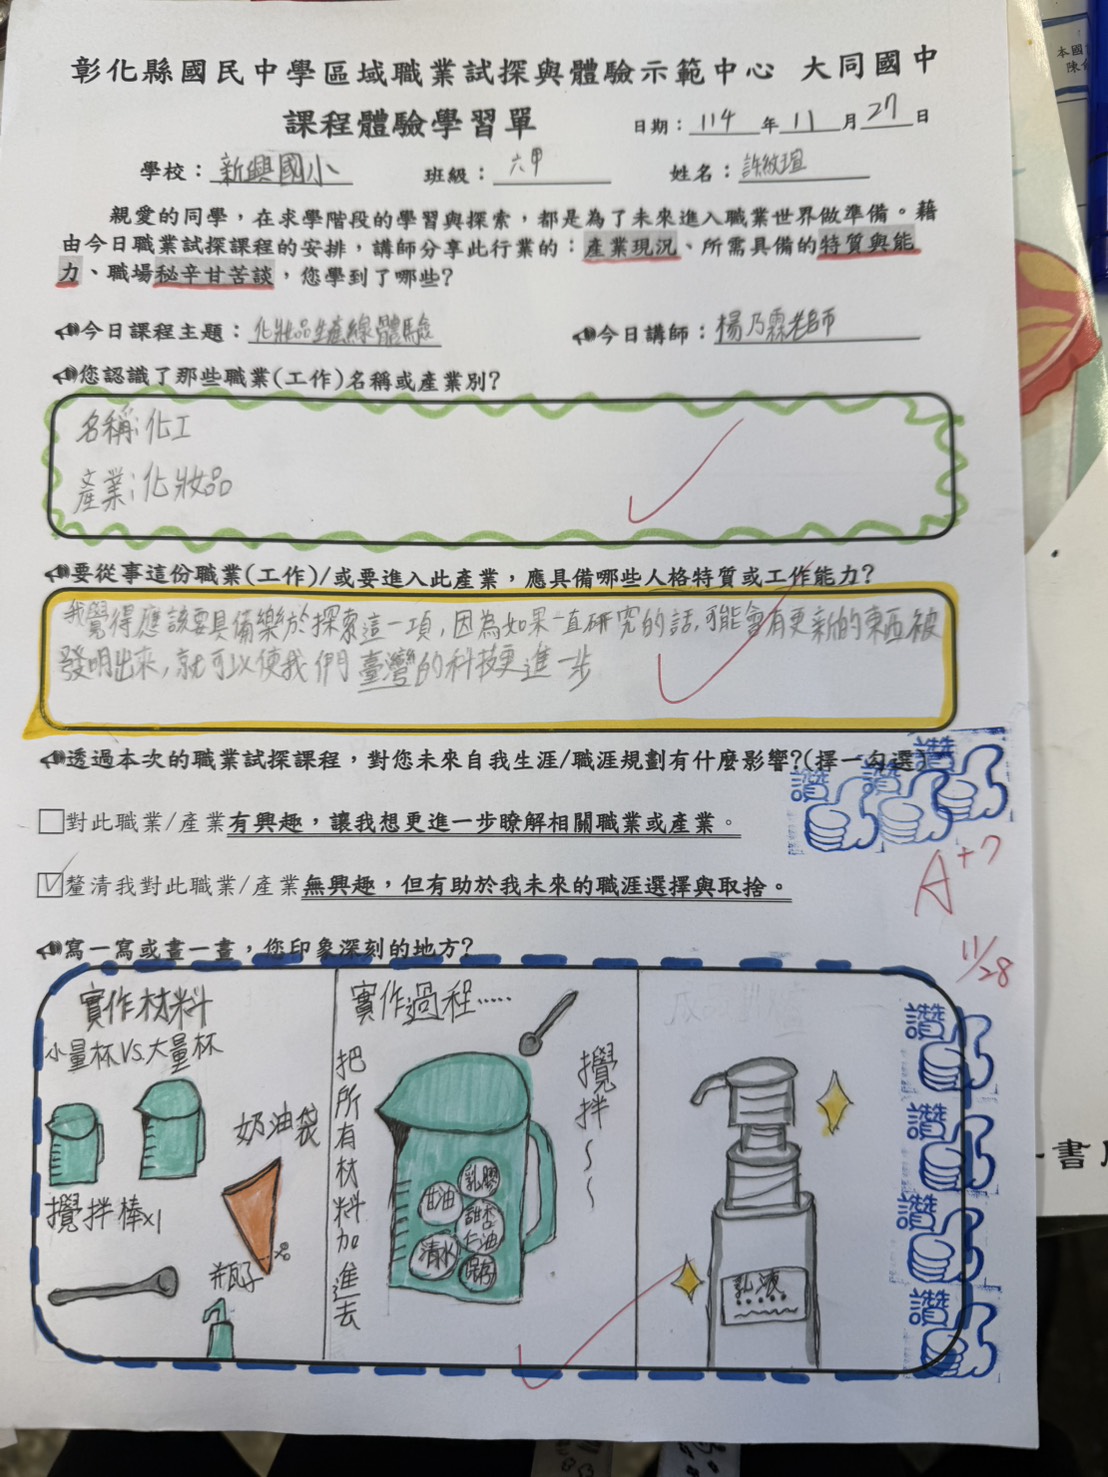 彰化縣國民中學區域職業試探與體驗示範中心 大同國中
課程體驗學習單
日期：114年11月27日
學校：新興國小 班級：六甲 姓名：許紋瑄
親愛的同學，在求學階段的學習與探索，都是為了未來進入職業世界做準備。藉
由今日職業試探課程的安排，講師分享此行業的：產業現況、所需具備的特質與能
力、職場秘辛甘苦談，您學到了哪些？
今日課程主題：化妝品生產線體驗 今日講師：楊乃霖老師
您認識了那些職業(工作)名稱或產業別？
名稱：化工
產業：化妝品
要從事這份職業(工作)/或要進入此產業，應具備哪些人格特質或工作能力？
我覺得應該要具備樂於探索這一項，因為如果一直研究的話，可能會有更新的東西被
發明出來，就可以使我們臺灣的科技更進一步
透過本次的職業試探課程，對您未來自我生涯/職涯規劃有什麼影響？(擇一勾選)
讚
讚
讚
□對此職業/產業有興趣，讓我想更進一步瞭解相關職業或產業。
A+7
☑釐清我對此職業/產業無興趣，但有助於我未來的職涯選擇與取捨。
11/28
寫一寫或畫一畫，您印象深刻的地方？
實作材料
小量杯VS.大量杯
奶油袋
攪拌棒x1
瓶子
實作過程.....
把所有材料加進去
攪拌~~
乳膠
甘油
甜杏仁油
清水
乳液
讚
讚
讚
讚
本國
書